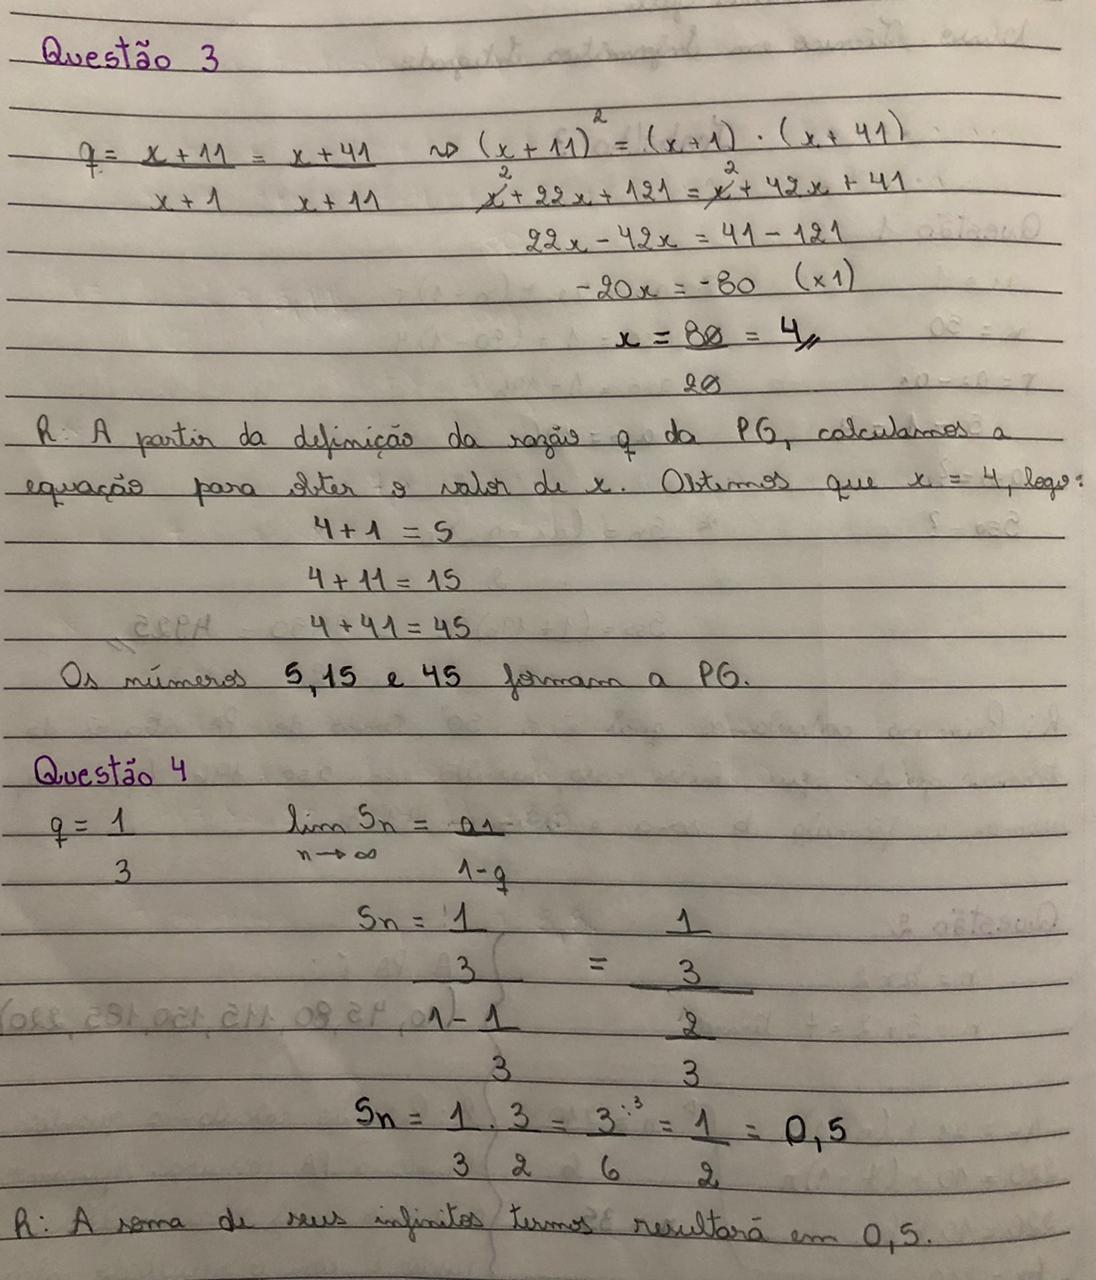 Questão 3
q = x + 11 / x + 1 = x + 41 / x + 11 ~> (x + 11)² = (x + 1) . (x + 41)
x² + 22x + 121 = x² + 42x + 41
22x - 42x = 41 - 121
-20x = -80 (x1)
x = 80 / 20 = 4//
R: A partir da definição da razão q da PG, calculamos a
equação para obter o valor de x. Obtemos que x = 4, logo:
4 + 1 = 5
4 + 11 = 15
4 + 41 = 45
Os números 5, 15 e 45 formam a PG.
Questão 4
q = 1 / 3 lim n→∞ Sn = a1 / 1-q
Sn = 1/3 / 1 - 1/3 = 1/3 / 2/3
Sn = 1/3 . 3/2 = 3/6 :3 = 1/2 = 0,5
R: A soma de seus infinitos termos resultará em 0,5.